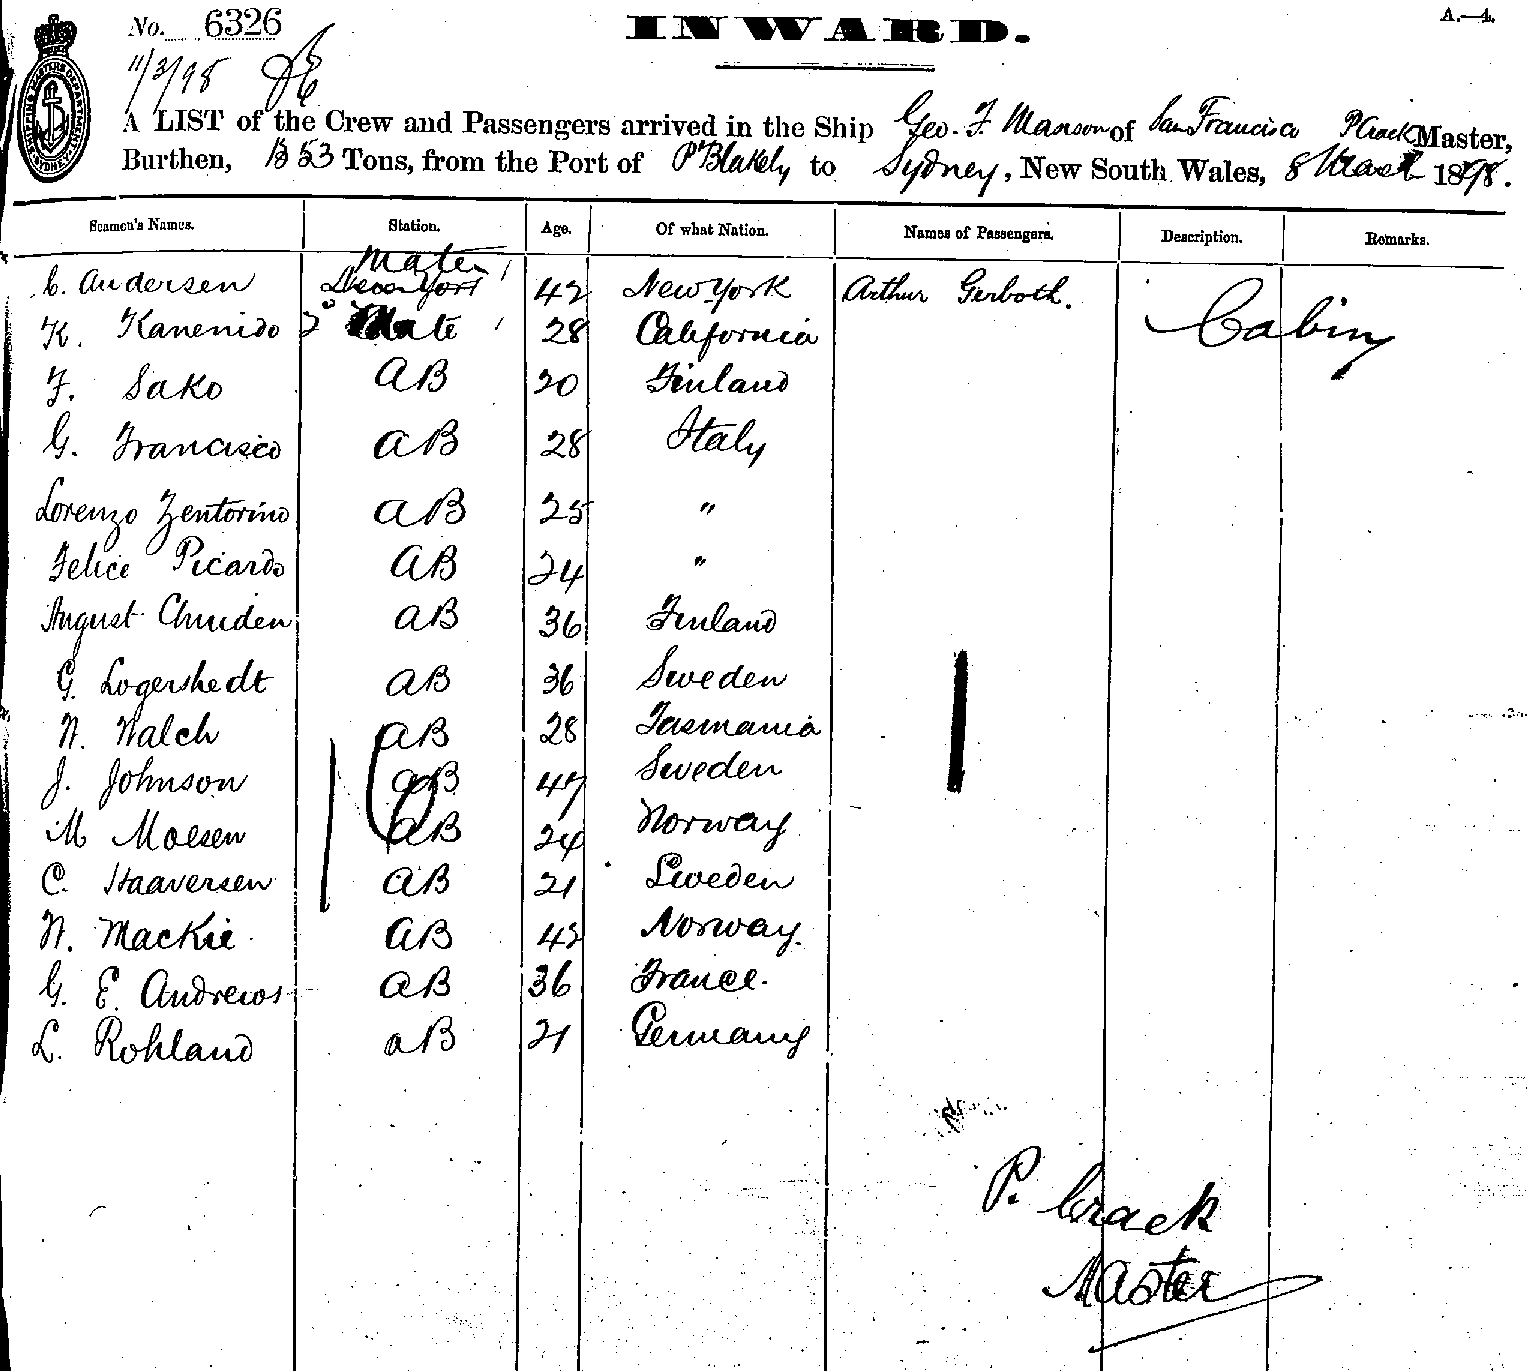 No. 6326
INWARD.
A.—4.
11/3/98
A LIST of the Crew and Passengers arrived in the Ship Geo. F. Manson of San Francisco P Crack Master,
Burthen, B 53 Tons, from the Port of Pt Blakely to Sydney, New South Wales, 8 March 1898.
Seamen's Names. Station. Age. Of what Nation. Names of Passengers. Description. Remarks.
C. Andersen Mate 42 New York Arthur Gerboth. Cabin
K. Kanenido 2 Mate 28 California
F. Sako AB 20 Finland
G. Francisco AB 28 Italy
Lorenzo Zentorino AB 25 "
Felice Picardo AB 24 "
August AB 36 Finland
G. Logershedt AB 36 Sweden
W. Walch AB 28 Tasmania
J. Johnson AB 47 Sweden
M Moesen AB 24 Norway
C. Haaversen AB 21 Sweden
W. Mackie AB 42 Norway.
G. E. Andrews AB 36 France.
L. Rohland AB 21 Germany
P. Crack
Master